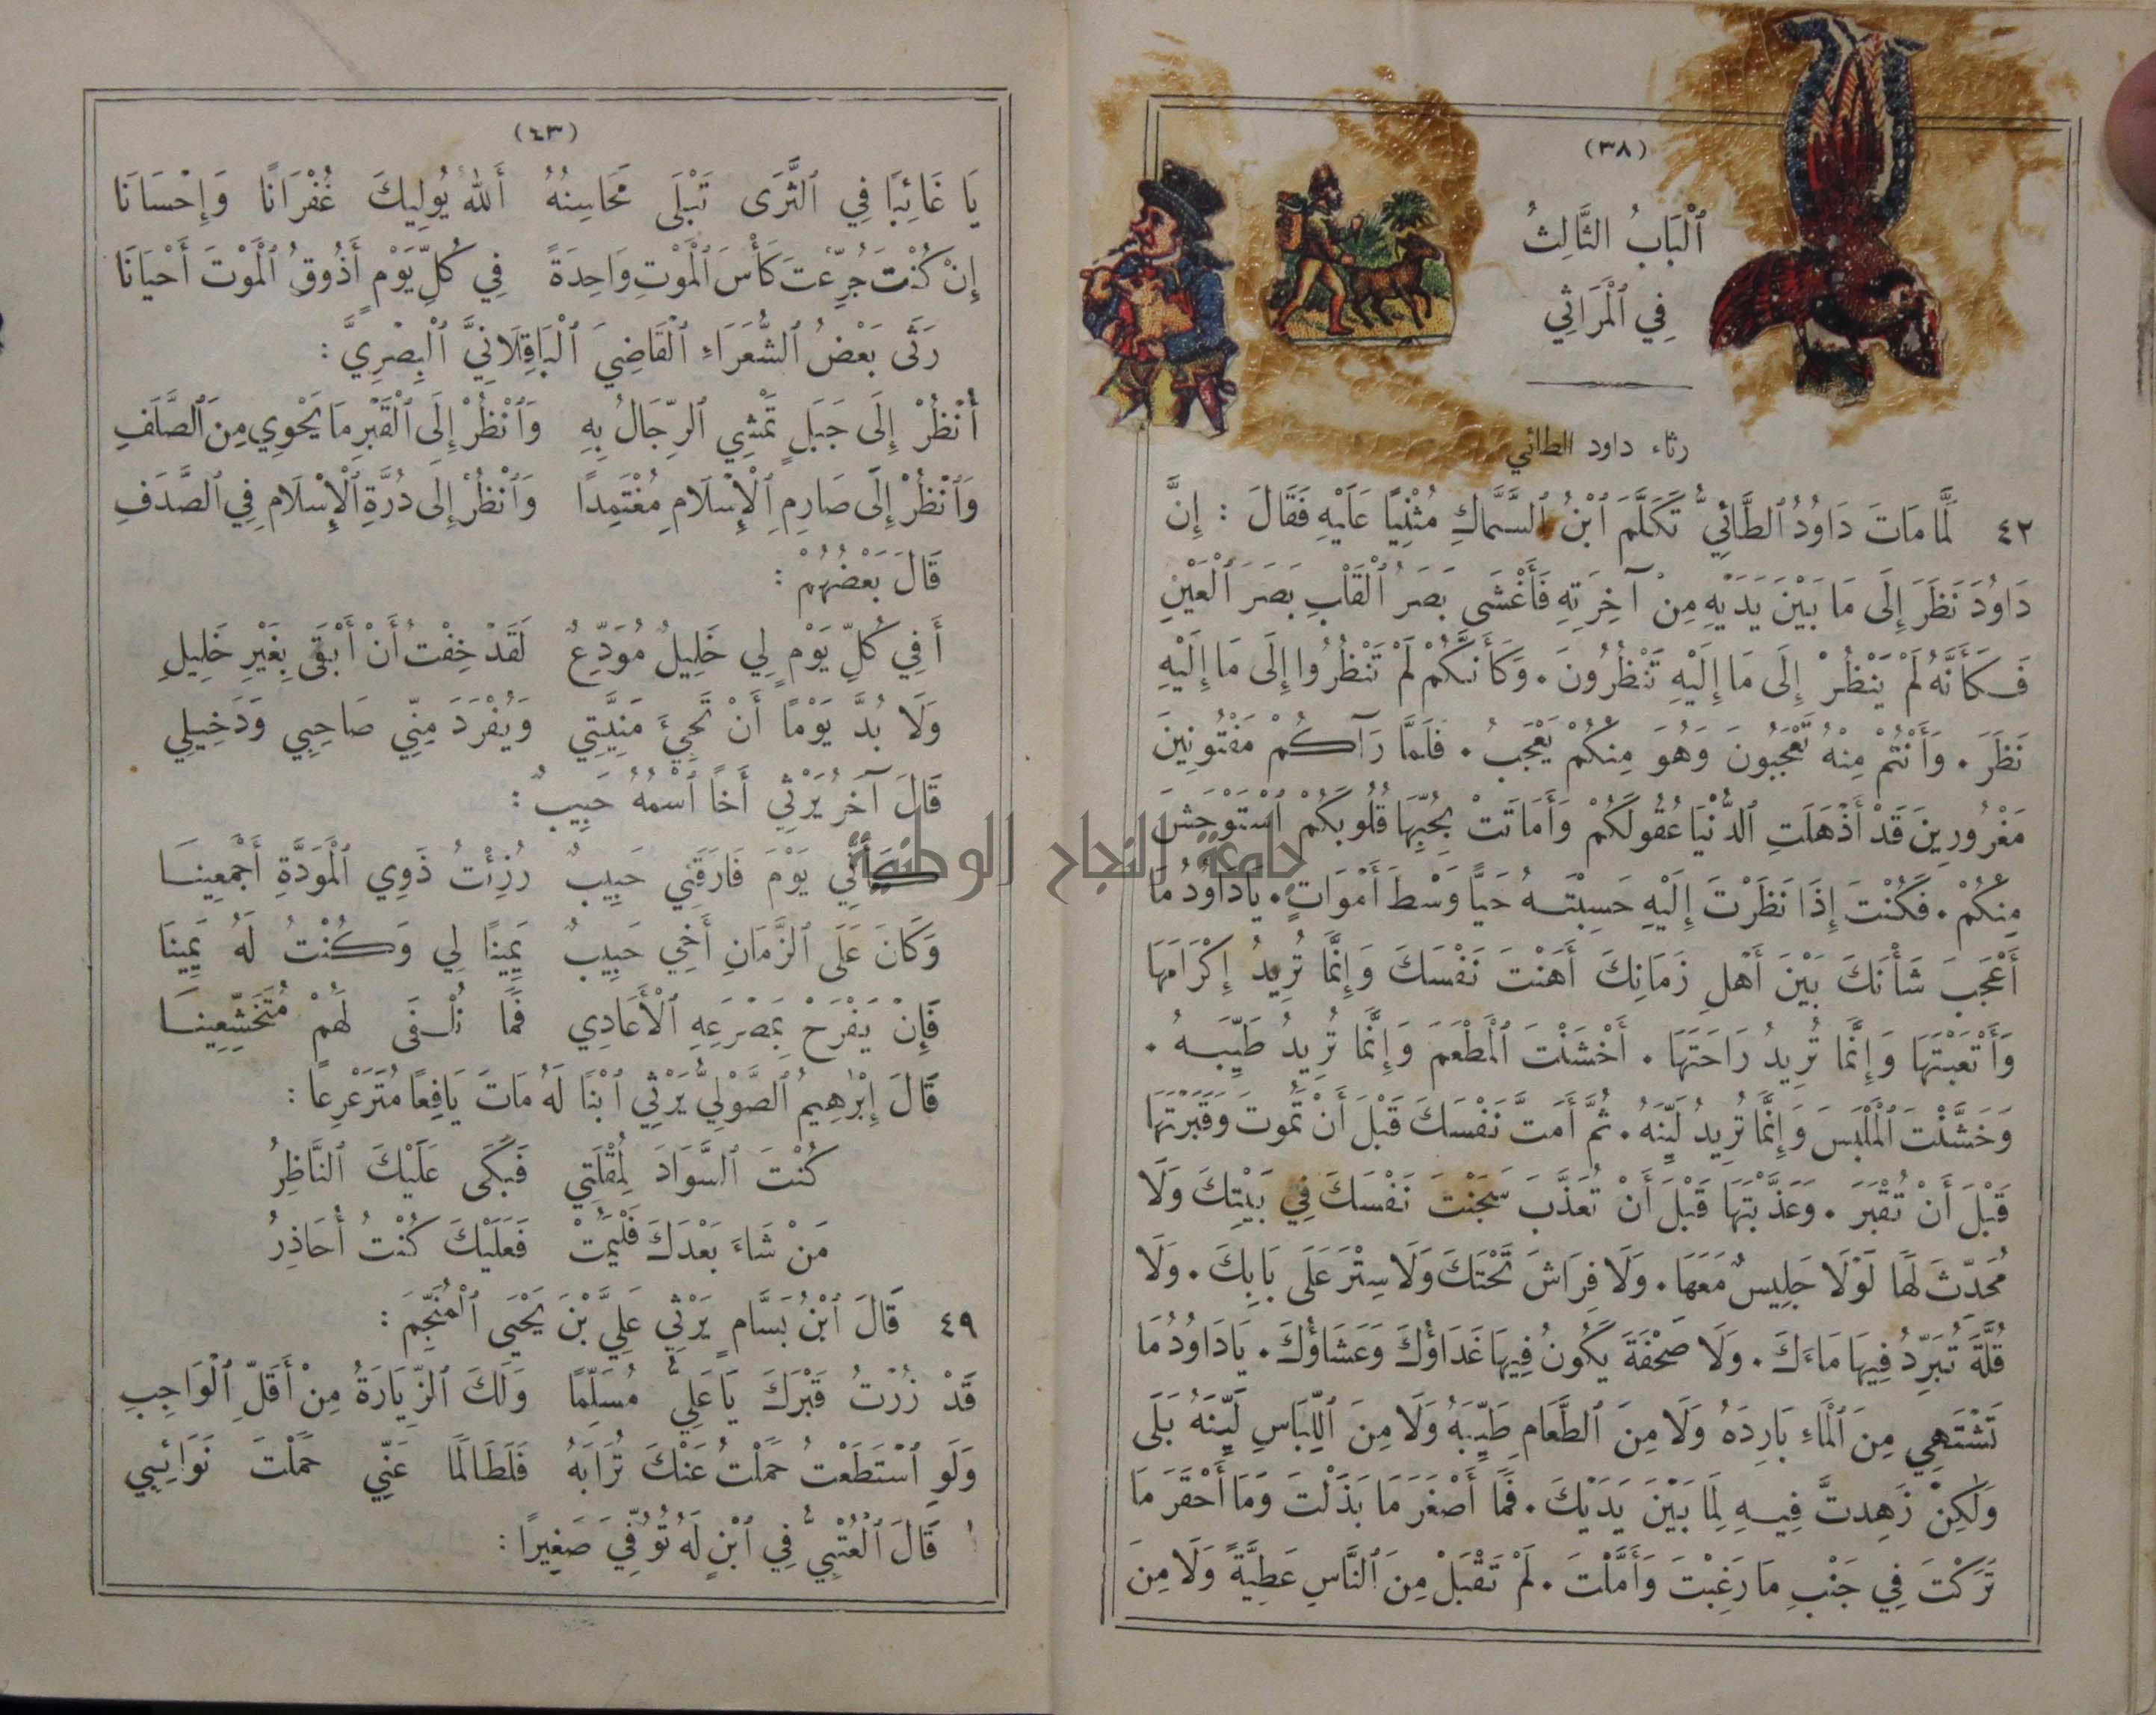 (٣٨)
اَلْبَابُ الثَّالِثُ
فِي اَلْمَرَاثِي
رثاء داود الطائي
٤٢ لَمَّا مَاتَ دَاوُدُ اَلطَّائِيُّ تَكَلَّمَ اَبْنُ اَلسَّمَّاكِ مُثْنِيًا عَلَيْهِ فَقَالَ : إِنَّ
دَاوُدَ نَظَرَ إِلَى مَا بَيْنَ يَدَيْهِ مِنْ آخِرَتِهِ فَأَغْشَى بَصَرُ اَلْقَلْبِ بَصَرَ اَلْعَيْنِ
فَكَأَنَّهُ لَمْ يَنْظُرْ إِلَى مَا إِلَيْهِ تَنْظُرُونَ . وَكَأَنَّكُمْ لَمْ تَنْظُرُوا إِلَى مَا إِلَيْهِ
نَظَرَ . وَأَنْتُمْ مِنْهُ تَعْجَبُونَ وَهُوَ مِنْكُمْ يَعْجَبُ . فَلَمَّا رَآكُمْ مَفْتُونِينَ
مَغْرُورِينَ قَدْ أَذْهَلَتِ اَلدُّنْيَا عُقُولَكُمْ وَأَمَاتَتْ بِحُبِّهَا قُلُوبَكُمْ اَسْتَوْحَشَ
مِنْكُمْ . فَكُنْتَ إِذَا نَظَرْتَ إِلَيْهِ حَسِبْتَهُ حَيًّا وَسْطَ أَمْوَاتٍ . يَا دَاوُدُ مَا
أَعْجَبَ شَأْنَكَ بَيْنَ أَهْلِ زَمَانِكَ أَهَنْتَ نَفْسَكَ وَإِنَّمَا تُرِيدُ إِكْرَامَهَا
وَأَتْعَبْتَهَا وَإِنَّمَا تُرِيدُ رَاحَتَهَا . أَخْشَنْتَ اَلْمَطْعَمَ وَإِنَّمَا تُرِيدُ طَيِّبَهُ .
وَخَشَّنْتَ اَلْمَلْبَسَ وَإِنَّمَا تُرِيدُ لَيِّنَهُ . ثُمَّ أَمَتَّ نَفْسَكَ قَبْلَ أَنْ تَمُوتَ وَقَبَرْتَهَا
قَبْلَ أَنْ تُقْبَرَ . وَعَذَّبْتَهَا قَبْلَ أَنْ تُعَذَّبَ سَجَنْتَ نَفْسَكَ فِي بَيْتِكَ وَلَا
مُحَدِّثَ لَهَا لَوْلَا جَلِيسٌ مَعَهَا . وَلَا فِرَاشَ تَحْتَكَ وَلَا سِتْرَ عَلَى بَابِكَ . وَلَا
قُلَّةَ تُبَرِّدُ فِيهَا مَاءَكَ . وَلَا صَحْفَةَ يَكُونُ فِيهَا غَدَاؤُكَ وَعَشَاؤُكَ . يَا دَاوُدُ مَا
تَشْتَهِي مِنَ اَلْمَاءِ بَارِدَهُ وَلَا مِنَ اَلطَّعَامِ طَيِّبَهُ وَلَا مِنَ اَللِّبَاسِ لَيِّنَهُ بَلَى
وَلٰكِنْ زَهِدتَّ فِيهِ لِمَا بَيْنَ يَدَيْكَ . فَمَا أَصْغَرَ مَا بَذَلْتَ وَمَا أَحْقَرَ مَا
تَرَكْتَ فِي جَنْبِ مَا رَغِبْتَ وَأَمَّلْتَ . لَمْ تَقْبَلْ مِنَ اَلنَّاسِ عَطِيَّةً وَلَا مِنَ
(٤٣)
يَا غَائِبًا فِي اَلثَّرَى تَبْلَى مَحَاسِنُهُ أَللهُ يُولِيكَ غُفْرَانًا وَإِحْسَانَا
إِنْ كُنْتَ جُرِّعْتَ كَأْسَ اَلْمَوْتِ وَاحِدَةً فِي كُلِّ يَوْمٍ أَذُوقُ اَلْمَوْتَ أَحْيَانَا
رَثَى بَعْضُ اَلشُّعَرَاءِ اَلْقَاضِيَ اَلْبَاقِلَانِيَّ اَلْبِصْرِيَّ :
أُنْظُرْ إِلَى جَبَلٍ تَمْشِي اَلرِّجَالُ بِهِ وَاَنْظُرْ إِلَى اَلْقَبْرِ مَا يَحْوِي مِنَ اَلصَّلَفِ
وَاَنْظُرْ إِلَى صَارِمِ اَلْإِسْلَامِ مُغْتَمِدًا وَاَنْظُرْ إِلَى دُرَّةِ اَلْإِسْلَامِ فِي اَلصَّدَفِ
قَالَ بَعْضُهُمْ :
أَفِي كُلِّ يَوْمٍ لِي خَلِيلٌ مُوَدِّعٌ لَقَدْ خِفْتُ أَنْ أَبْقَى بِغَيْرِ خَلِيلِ
وَلَا بُدَّ يَوْمًا أَنْ تَجِيءَ مَنِيَّتِي وَيُفْرَدَ مِنِّي صَاحِبِي وَدَخِيلِي
قَالَ آخَرُ يَرْثِي أَخًا اَسْمُهُ حَبِيبٌ :
كَأَنِّي يَوْمَ فَارَقَنِي حَبِيبٌ رُزِئْتُ ذَوِي اَلْمَوَدَّةِ أَجْمَعِينَا
وَكَانَ عَلَى اَلزَّمَانِ أَخِي حَبِيبٌ يَمِينًا لِي وَكُنْتُ لَهُ يَمِينَا
فَإِنْ يَفْرَحْ بِمَصْرَعِهِ اَلْأَعَادِي فَمَا نُلْفَى لَهُمْ مُتَخَشِّعِينَا
قَالَ إِبْرٰهِيمُ اَلصَّوْلِيُّ يَرْثِي اَبْنًا لَهُ مَاتَ يَافِعًا مُتَرَعْرِعًا :
كُنْتَ اَلسَّوَادَ لِمُقْلَتِي فَبَكَى عَلَيْكَ اَلنَّاظِرُ
مَنْ شَاءَ بَعْدَكَ فَلْيَمُتْ فَعَلَيْكَ كُنْتُ أُحَاذِرُ
٤٩ قَالَ اَبْنُ بَسَّامٍ يَرْثِي عَلِيَّ بْنَ يَحْيَى اَلْمُنَجِّمَ :
قَدْ زُرْتُ قَبْرَكَ يَا عَلِيُّ مُسَلِّمًا وَلَكَ اَلزِّيَارَةُ مِنْ أَقَلِّ اَلْوَاجِبِ
وَلَوِ اَسْتَطَعْتُ حَمَلْتُ عَنْكَ تُرَابَهُ فَلَطَالَمَا عَنِّي حَمَلْتَ نَوَائِبِي
قَالَ اَلْعُتْبِيُّ فِي اَبْنٍ لَهُ تُوُفِّيَ صَغِيرًا :
جامعة النجاح الوطنية